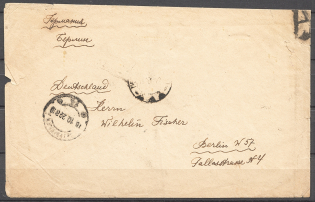 Германия
Берлин
Deutschland
Herrn
Wilhelm Fischer
Berlin W 57.
Pallasstrasse